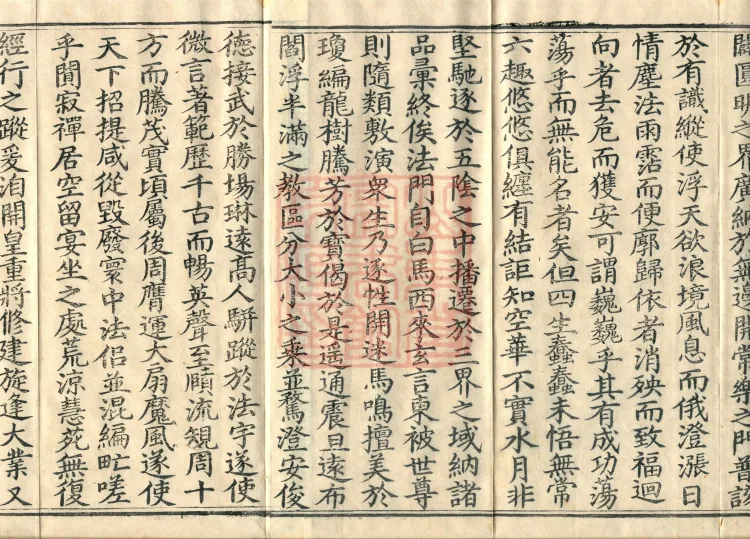 闢圓明之界廣納於無邊開常樂之門普該
於有識縱使浮天欲浪境風息而俄澄漲日
情塵法雨霑而便廓歸依者消殃而致福迴
向者去危而獲安可謂巍巍乎其有成功蕩
蕩乎而無能名者矣但四生蠢蠢未悟無常
六趣悠悠俱纏有結詎知空華不實水月非
堅馳逐於五陰之中播遷於三界之域納諸
品彙終俟法門自白馬西來玄言東被世尊
則隨類敷演衆生乃逐性開迷馬鳴擅美於
瓊編龍樹騰芳於寶偈於是遥通震旦遠布
閻浮半滿之教區分大小之乘並騖澄安俊
德接武於勝場琳遠高人駢蹤於法宇遂使
微言著範歷千古而暢英聲至賾流規周十
方而騰茂實頃屬後周膺運大扇魔風遂使
天下招提咸從毀廢寰中法侶並混編甿嗟
乎閴寂禪居空留宴坐之處荒涼慧苑無復
經行之蹤爰洎開皇重將修建旋逢大業又